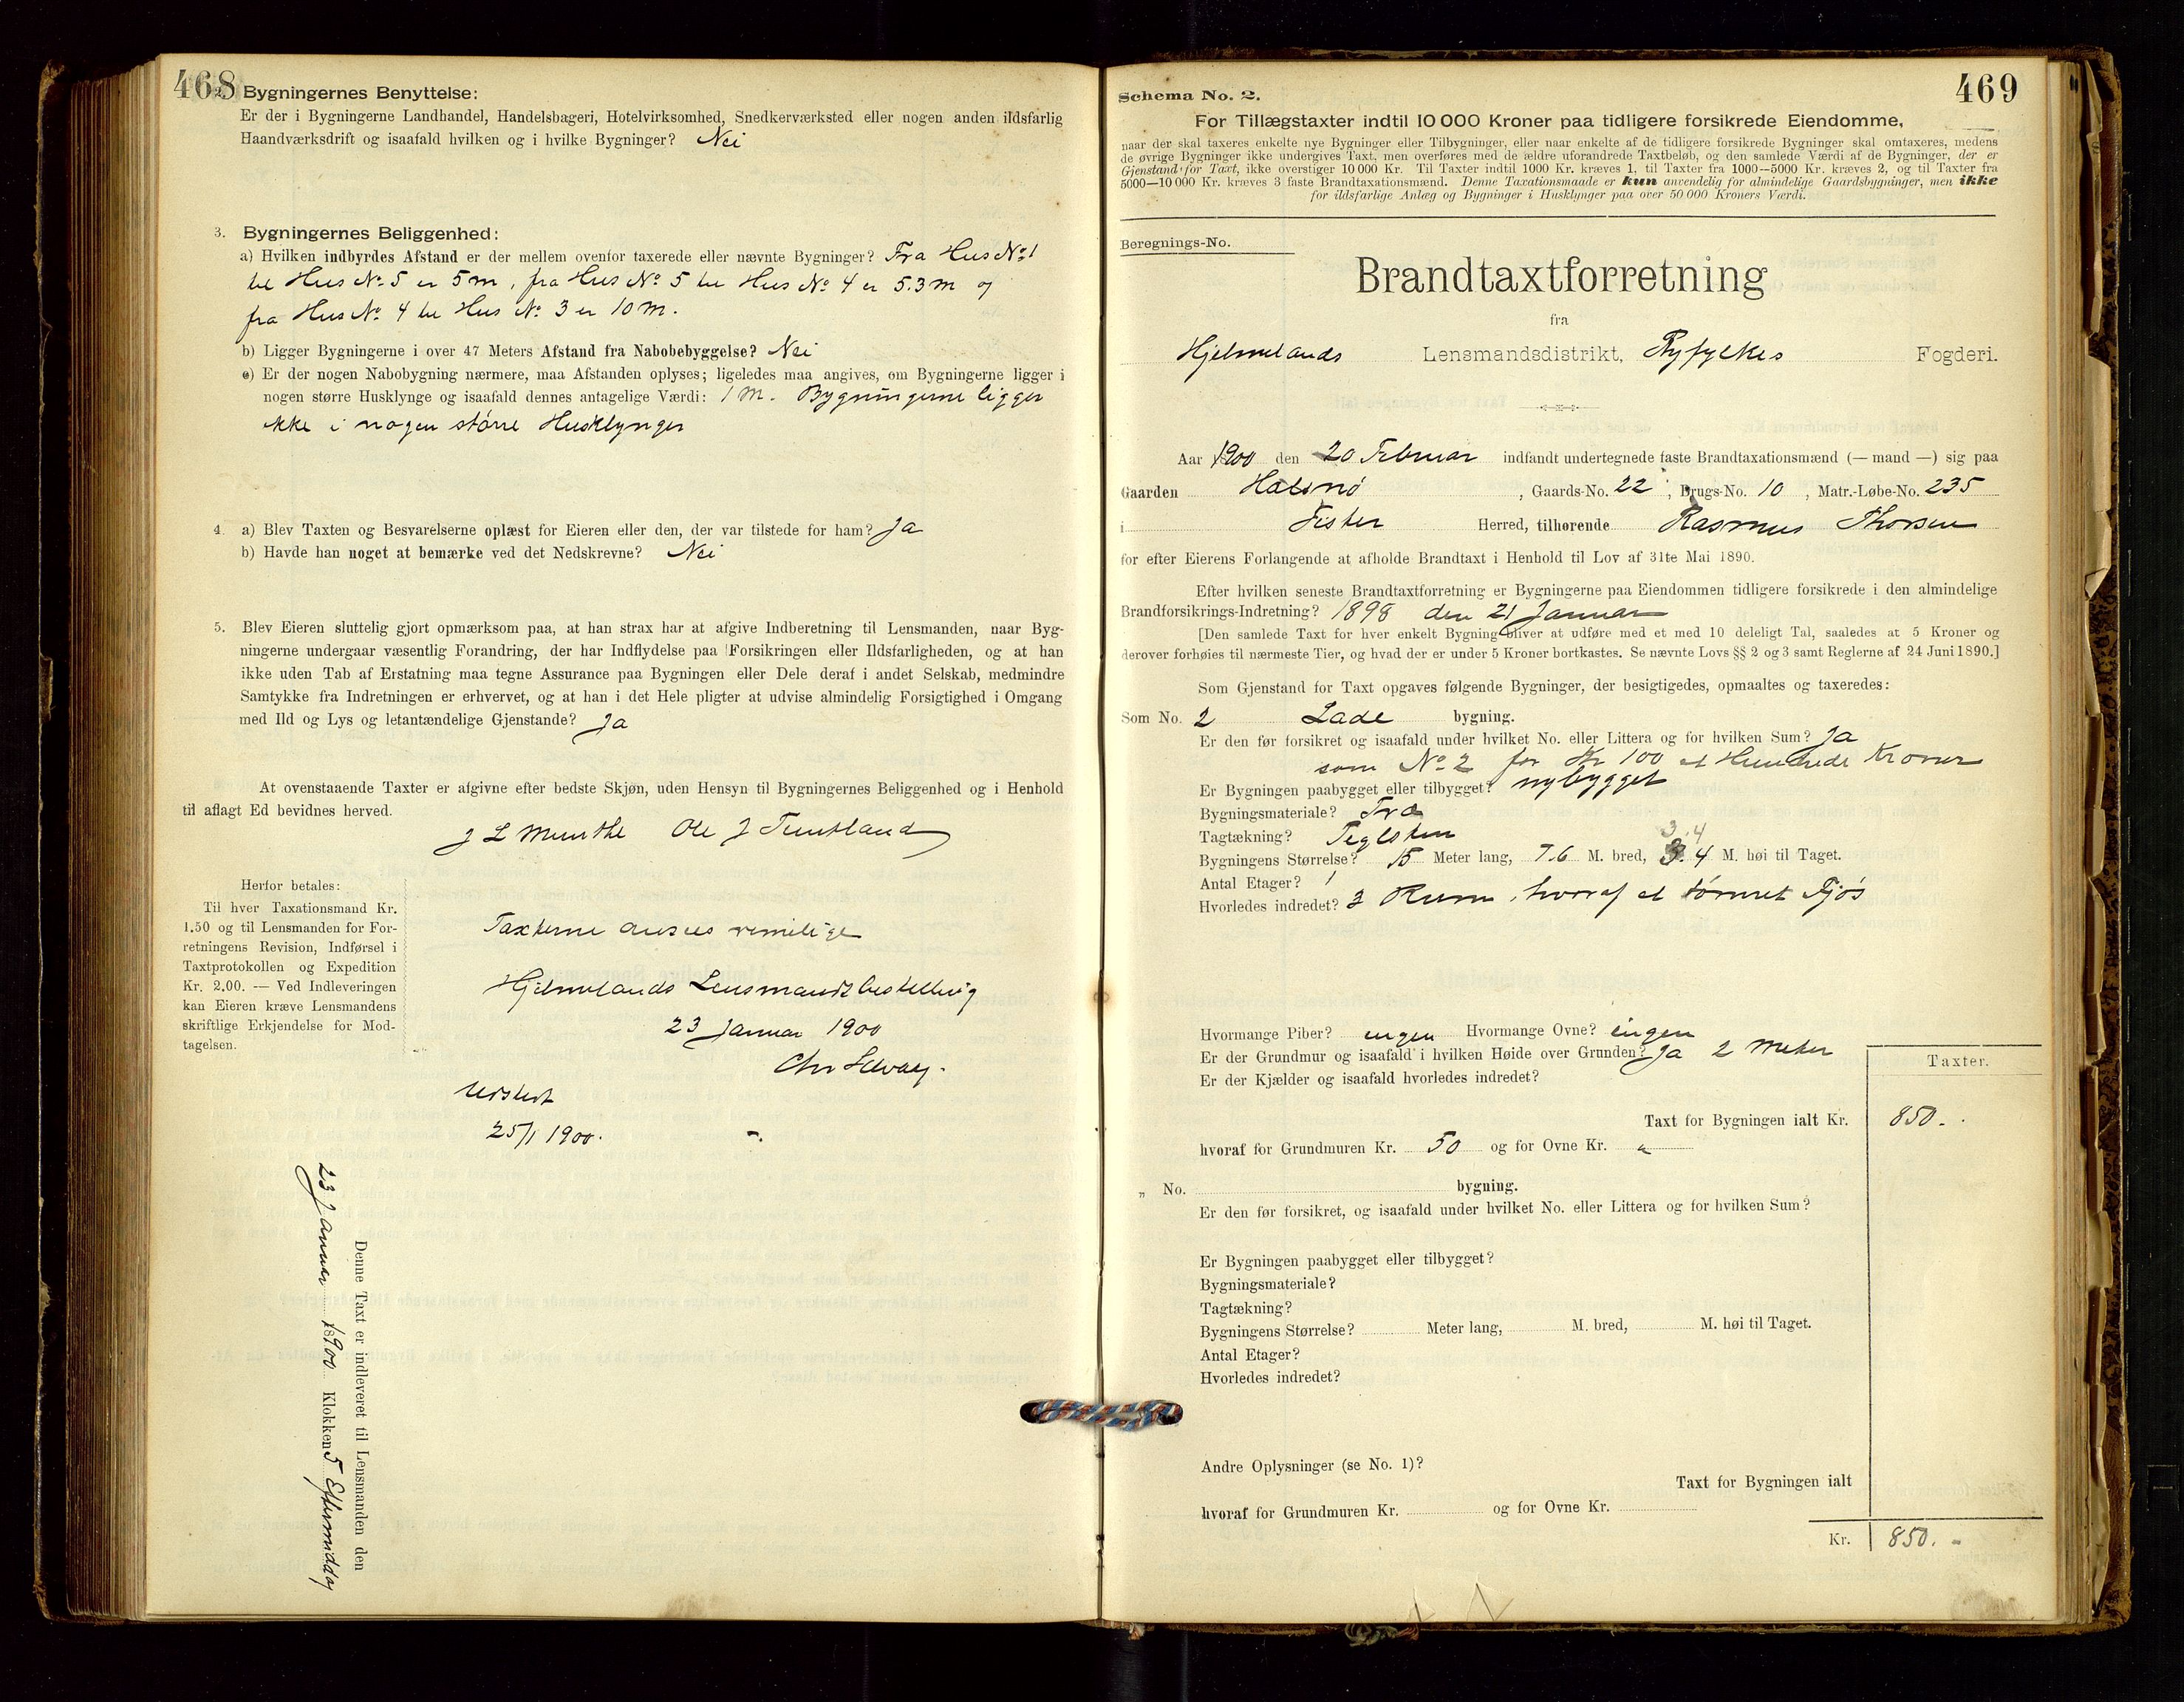 468
2. Bygningernes Benyttelse:
Er der i Bygningerne Landhandel, Handelsbageri, Hotelvirksomhed, Snedkerværksted eller nogen anden ildsfarlig
Haandværksdrift og isaafald hvilken og i hvilke Bygninger? Nei
3. Bygningernes Beliggenhed:
a) Hvilken indbyrdes Afstand er der mellem ovenfor taxerede eller nævnte Bygninger? Fra Hus No 1
til Hus No 5 er 5 m, fra Hus No 5 til Hus No 4 er 5.3 m og
fra Hus No 4 til Hus No 3 er 10 m.
b) Ligger Bygningerne i over 47 Meters Afstand fra Nabobebyggelse? Nei
c) Er der nogen Nabobygning nærmere, maa Afstanden oplyses; ligeledes maa angives, om Bygningerne ligger i
nogen større Husklynge og isaafald dennes antagelige Værdi: 1 M. Bygningerne ligger
ikke i nogen större Husklynger
4. a) Blev Taxten og Besvarelserne oplæst for Eieren eller den, der var tilstede for ham? Ja
b) Havde han noget at bemærke ved det Nedskrevne? Nei
5. Blev Eieren sluttelig gjort opmærksom paa, at han strax har at afgive Indberetning til Lensmanden, naar Byg-
ningerne undergaar væsentlig Forandring, der har Indflydelse paa Forsikringen eller Ildsfarligheden, og at han
ikke uden Tab af Erstatning maa tegne Assurance paa Bygningen eller Dele deraf i andet Selskab, medmindre
Samtykke fra Indretningen er erhvervet, og at han i det Hele pligter at udvise almindelig Forsigtighed i Omgang
med Ild og Lys og letantændelige Gjenstande? Ja
At ovenstaaende Taxter er afgivne efter bedste Skjøn, uden Hensyn til Bygningernes Beliggenhed og i Henhold
til aflagt Ed bevidnes herved.
J L Munthe Ole J Tuntland
Herfor betales:
Til hver Taxationsmand Kr.
1.50 og til Lensmanden for For-
retningens Revision, Indførsel i
Taxtprotokollen og Expedition
Kr. 2.00. — Ved Indleveringen
kan Eieren kræve Lensmandens
skriftlige Erkjendelse for Mod-
tagelsen.
Taxterne ansees rimelige
Hjelmelands Lensmandsbestilling
23 Januar 1900
Chr
Udstedt
25/1 1900.
Denne Taxt er indleveret til Lensmanden den
23 Januar 1900 Klokken 5 Eftermiddag
469
Schema No. 2.
For Tillægstaxter indtil 10 000 Kroner paa tidligere forsikrede Eiendomme,
naar der skal taxeres enkelte nye Bygninger eller Tilbygninger, eller naar enkelte af de tidligere forsikrede Bygninger skal omtaxeres, medens
de øvrige Bygninger ikke undergives Taxt, men overføres med de ældre uforandrede Taxtbeløb, og den samlede Værdi af de Bygninger, der er
Gjenstand for Taxt, ikke overstiger 10 000 Kr. Til Taxter indtil 1000 Kr. kræves 1, til Taxter fra 1000—5000 Kr. kræves 2, og til Taxter fra
5000—10 000 Kr. kræves 3 faste Brandtaxationsmænd. Denne Taxationsmaade er kun anvendelig for almindelige Gaardsbygninger, men ikke
for ildsfarlige Anlæg og Bygninger i Husklynger paa over 50 000 Kroners Værdi.
Beregnings-No.
Brandtaxtforretning
fra
Hjelmelands Lensmandsdistrikt, Ryfylkes Fogderi.
Aar 1900 den 20 Februar indfandt undertegnede faste Brandtaxationsmænd (— mand —) sig paa
Gaarden Halsnö, Gaards-No. 22, Brugs-No. 10, Matr.-Løbe-No. 235
i Fister Herred, tilhørende Rasmus Thorsen
for efter Eierens Forlangende at afholde Brandtaxt i Henhold til Lov af 31te Mai 1890.
Efter hvilken seneste Brandtaxtforretning er Bygningerne paa Eiendommen tidligere forsikrede i den almindelige
Brandforsikrings-Indretning? 1898 den 21 Januar
[Den samlede Taxt for hver enkelt Bygning bliver at udføre med et med 10 deleligt Tal, saaledes at 5 Kroner og
derover forhøies til nærmeste Tier, og hvad der er under 5 Kroner bortkastes. Se nævnte Lovs §§ 2 og 3 samt Reglerne af 24 Juni 1890.]
Som Gjenstand for Taxt opgaves følgende Bygninger, der besigtigedes, opmaaltes og taxeredes:
Som No. 2 Lade bygning.
Er den før forsikret og isaafald under hvilket No. eller Littera og for hvilken Sum? Ja
som No 2 for Kr 100 et Hundrede Kroner
Er Bygningen paabygget eller tilbygget? nybygget
Bygningsmateriale? Træ
Tagtækning? Teglsten
3.4
Bygningens Størrelse? 15 Meter lang, 7.6 M. bred, 3.4 M. høi til Taget.
Antal Etager? 1
Hvorledes indredet? 3 Rum, hvoraf et tömret Fjös
Hvormange Piber? ingen Hvormange Ovne? ingen
Er der Grundmur og isaafald i hvilken Høide over Grunden? Ja 2 Meter
Er der Kjælder og isaafald hvorledes indredet?
Taxter.
Taxt for Bygningen ialt Kr. 850.-
hvoraf for Grundmuren Kr. 50 og for Ovne Kr. "
„ No. bygning.
Er den før forsikret, og isaafald under hvilket No. eller Littera og for hvilken Sum?
Er Bygningen paabygget eller tilbygget?
Bygningsmateriale?
Tagtækning?
Bygningens Størrelse? Meter lang, M. bred, M. høi til Taget.
Antal Etager?
Hvorledes indredet?
Andre Oplysninger (se No. 1)?
Taxt for Bygningen ialt
hvoraf for Grundmuren Kr. og for Ovne Kr.
Kr. 850.-